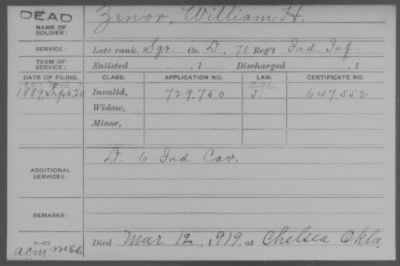 DEAD
NAME OF SOLDIER:
Zenor, William H.
SERVICE:
Late rank, Sgt. Co. D, 71 Reg't Ind. Inf.
TERM OF SERVICE:
Enlisted , 1 Discharged , 1
DATE OF FILING. CLASS. APPLICATION NO. LAW. CERTIFICATE NO.
1889 Sept 30 Invalid, 729,750 647,552
Widow,
Minor,
ADDITIONAL SERVICES:
D. 6 Ind. Cav.
REMARKS:
Died Mar 12, 1919, at Chelsea Okla
acm